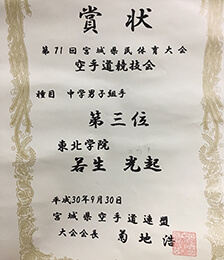 賞状
第71回宮城県民体育大会
空手道競技会
種目 中学男子組手
第三位
東北学院
若生 光起
平成30年9月30日
宮城県空手道連盟
大会会長 菊地浩